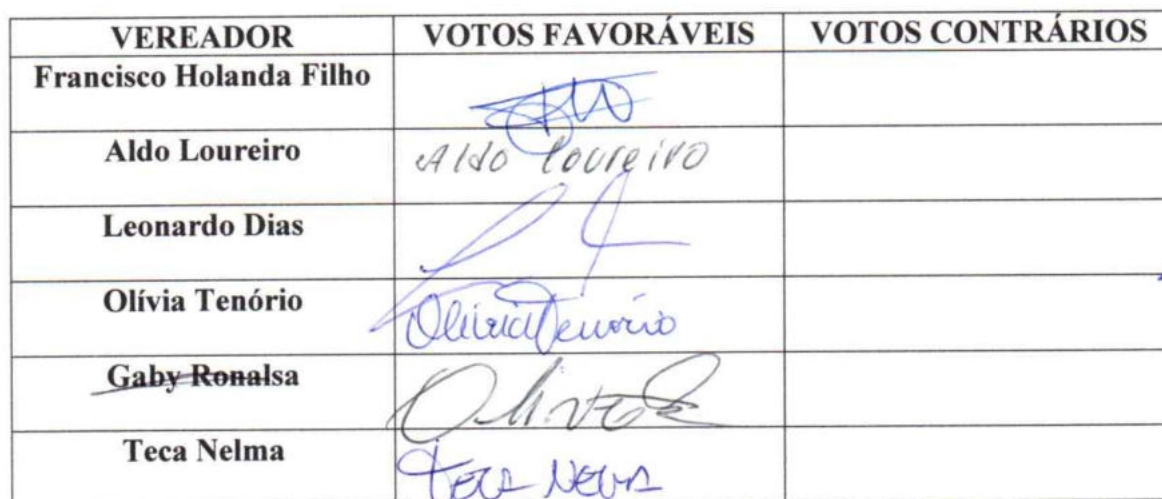 VEREADOR VOTOS FAVORÁVEIS VOTOS CONTRÁRIOS
Francisco Holanda Filho
Aldo Loureiro Aldo Loureiro
Leonardo Dias
Olívia Tenório Olívia Tenório
Gaby Ronalsa
Teca Nelma TECA NELMA